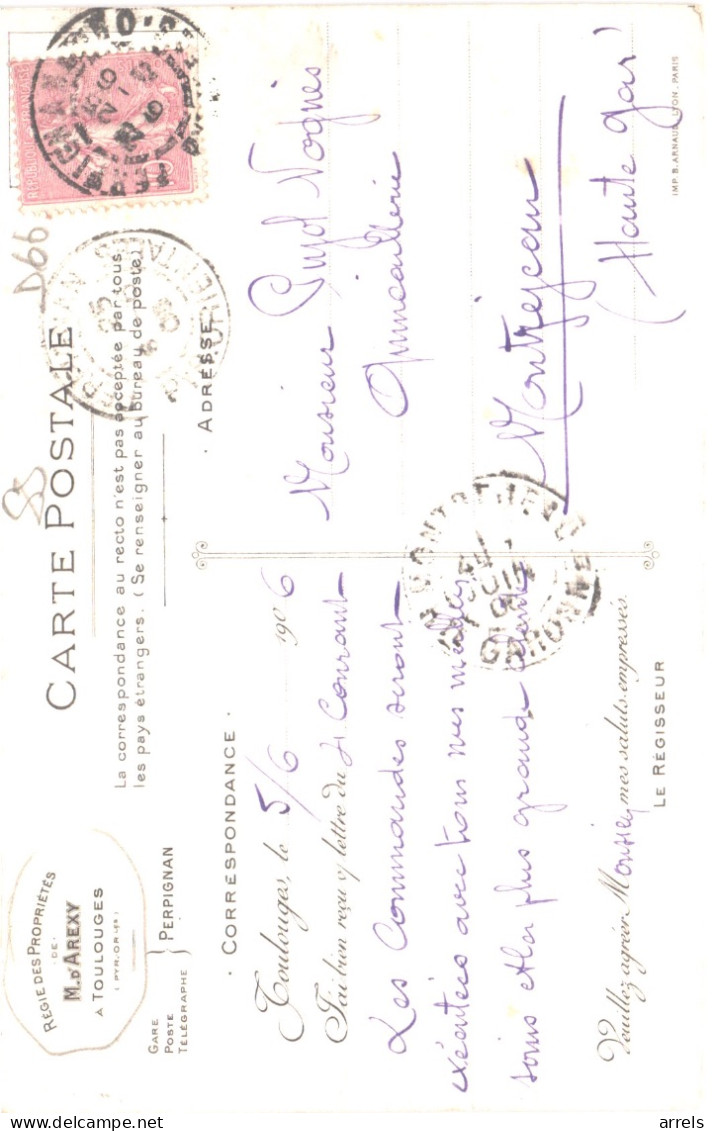 RÉGIE DES PROPRIÉTÉS
DE
M. D'AREXY
A TOULOUGES
(PYR.-OR.LES)
GARE
POSTE
TÉLÉGRAPHE
PERPIGNAN
CARTE POSTALE
La correspondance au recto n'est pas acceptée par tous
les pays étrangers. (Se renseigner au bureau de poste)
D66
CORRESPONDANCE
Toulouges, le 5/6 1906
J'ai bien reçu v/ lettre du 4 Courant
Les Commandes seront
exécutées avec tous mes meilleurs
soins et la plus grande
Veuillez agréer Monsieur mes saluts empressés.
LE RÉGISSEUR
ADRESSE
Monsieur Pujol Nogués
Quincaillerie
Montrejeau
(Haute gar)
IMP. B. ARNAUD, LYON-PARIS
arrels